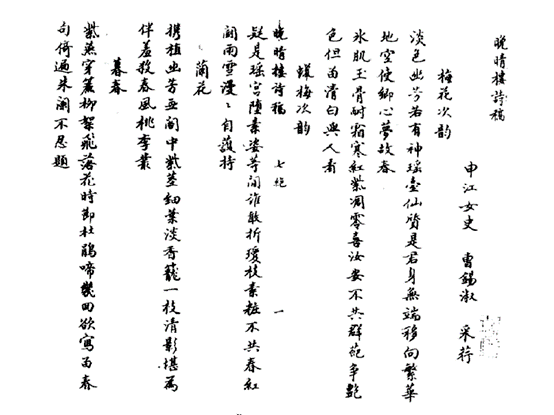 晚晴樓詩稿
申江女史 曹錫淑 采荇
梅花次韵
淡色幽芳若有神瑤臺仙質是君身無端移向繁華
地空使鄉心夢故春
氷肌玉骨耐霜寒紅紫凋零喜汝安不共群葩争艷
色但留清白與人看
蠟梅次韵
晚晴樓詩稿 七絕 一
疑是瑤宮墮素姿等閒誰敢折瓊枝素粧不共春紅
閙雨雪漫〻自護持
蘭花
携植幽芳闌中紫莖細葉淡香籠一枝清影堪為
伴羞殺春風桃李叢
暮春
紫燕穿簾柳絮飛落花時節杜鵑啼幾回欲寫留春
句倚遍朱闌不忍題